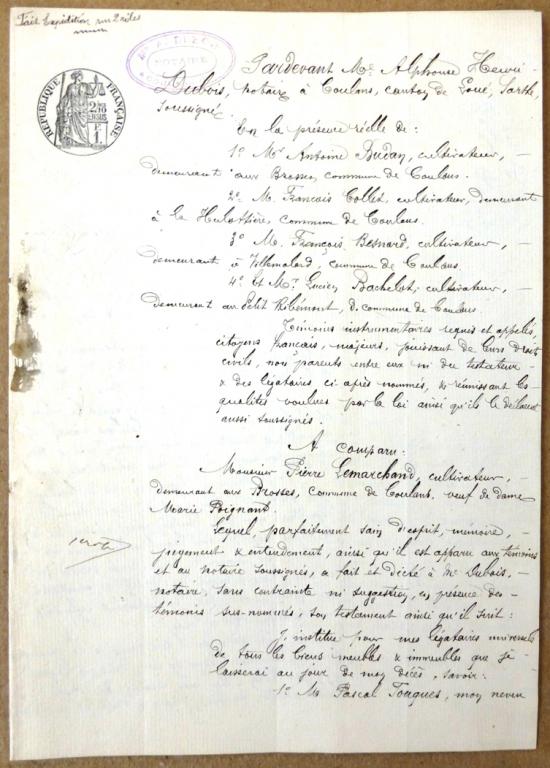 Fait Expédition sur 2 rôles
NOTAIRE
RÉPUBLIQUE FRANÇAISE
Pardevant Me Alphonse Henri
Dubois, notaire à Coulans, canton de Loué, Sarthe,
soussigné.
En la présence réelle de :
1o Mr Antoine Budan, cultivateur, –
demeurant aux Brosses, commune de Coulans.
2o M. François Collet, cultivateur, demeurant
à la Hulottière, commune de Coulans.
3o M. François Besnard, cultivateur, –
demeurant à Villemalard, commune de Coulans.
4o Et Mr Lucien Bachelot, cultivateur, –
demeurant au Petit Ribémont, dt commune de Coulans
Témoins instrumentaires requis et appelés,
citoyens français, majeurs, jouissant de leurs droits
civils, non parents entre eux ni du testateur –
& des légataires ci après nommés, & réunissant les
qualités voulues par la loi ainsi qu'ils le déclarent
aussi soussignés.
A comparu :
Monsieur Pierre Lemarchand, cultivateur, –
demeurant aux Brosses, commune de Coulans, veuf de dame
Marie Poignant.
Lequel, parfaitement sain d'esprit, mémoire, –
jugement & entendement, ainsi qu'il est apparu aux témoins
et au notaire soussignés, a fait et dicté à Me Dubois, –
notaire, sans contrainte ni suggestion, en présence des –
témoins sus-nommés, son testament ainsi qu'il suit :
J'institue pour mes légataires universels
de tous les biens meubles & immeubles que je
laisserai au jour de mon décès, savoir :
1o M. Pascal Fouques, mon neveu